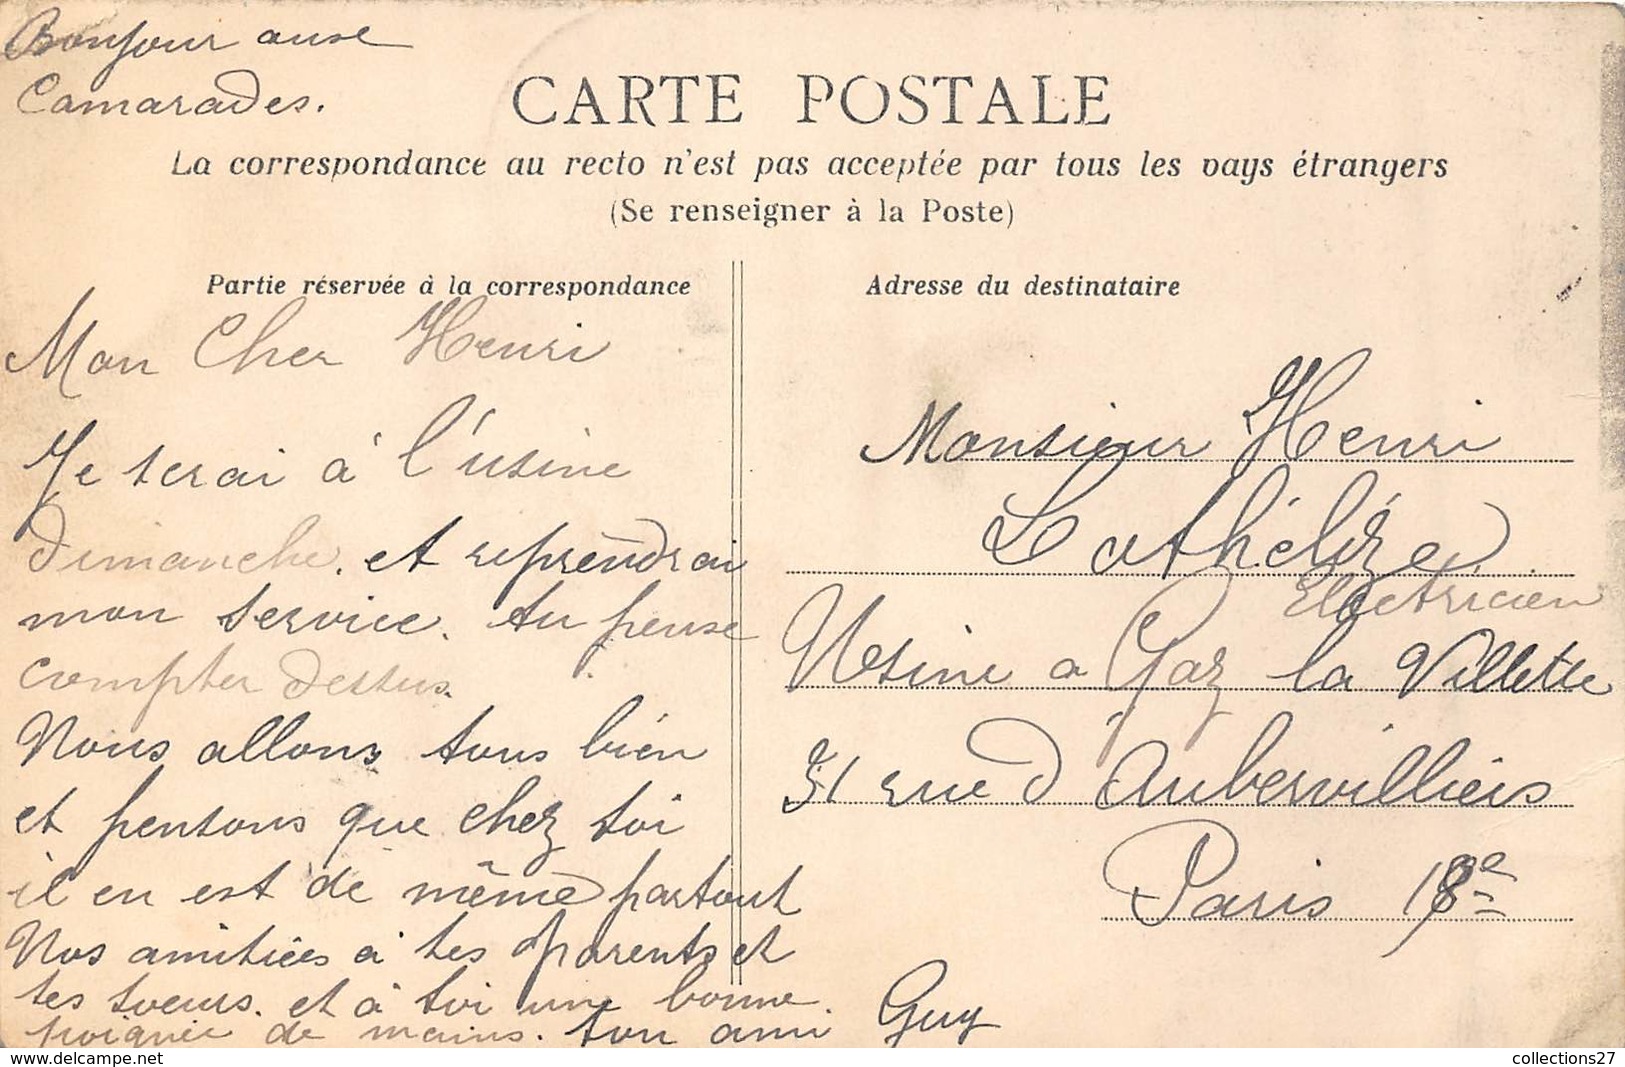 Bonjour aux
Camarades.
CARTE POSTALE
La correspondance au recto n'est pas acceptée par tous les pays étrangers
(Se renseigner à la Poste)
Partie réservée à la correspondance
Mon Cher Henri
Je serai à l'usine
dimanche. et reprendrai
mon service. tu peuse
compter dessus.
Nous allons tous bien
et pensons que chez toi
il en est de même partout
Nos amitiées à tes parents et
tes soeurs. et à toi une bonne
poignée de mains. ton ami Guy
Adresse du destinataire
Monsieur Henri
Electricien
Usine a Gaz la Villette
31 rue d'Aubervilliers
Paris 18e
collections27